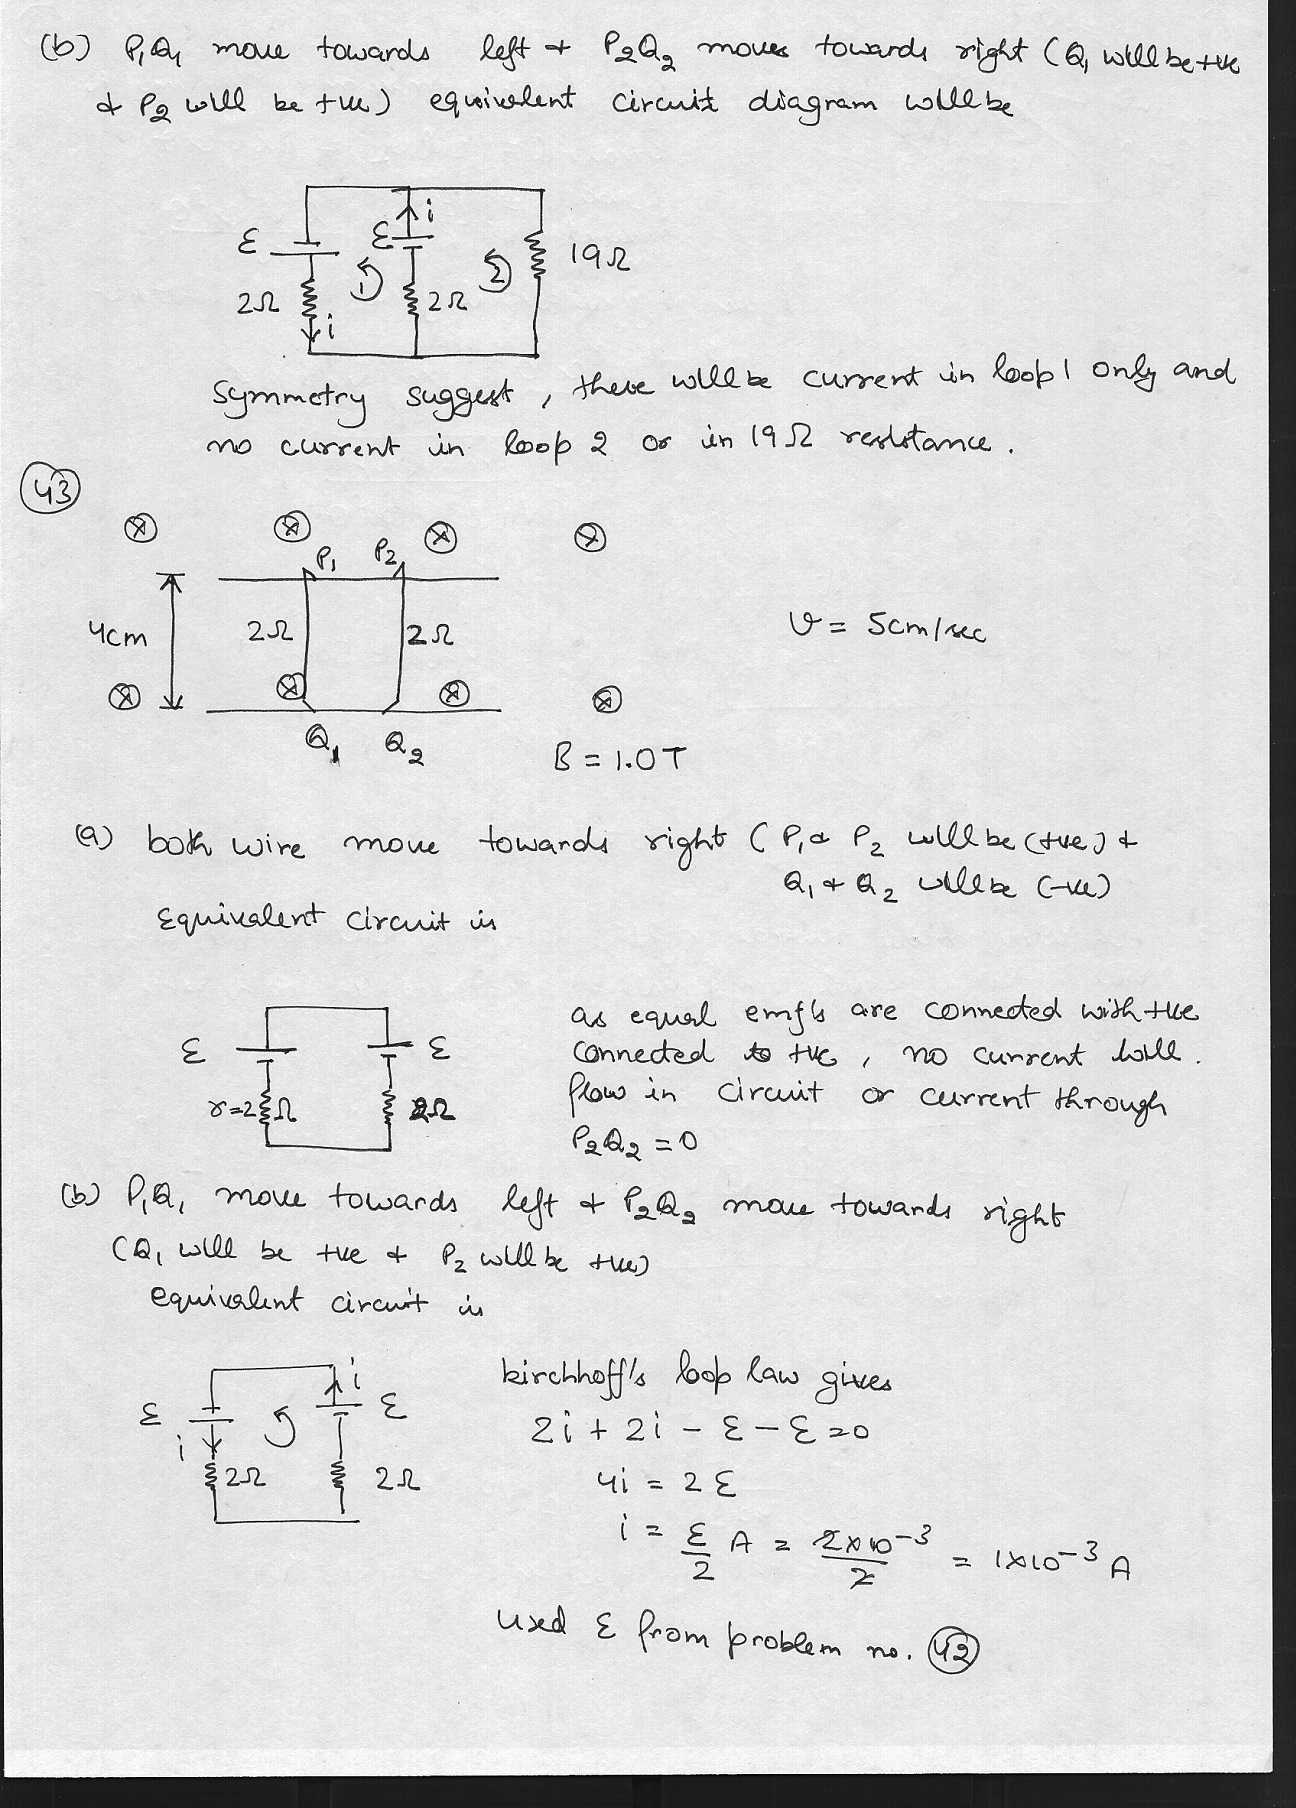 (b) P₁Q₁ move towards left & P₂Q₂ moves towards right (Q₁ will be +ve
& P₂ will be +ve) equivalent circuit diagram will be
ε ε i
2Ω 1 2Ω 2 19Ω
i
Symmetry suggest, there will be current in loop 1 only and
no current in loop 2 or in 19Ω resistance.
43
P₁ P₂
4cm 2Ω 2Ω v = 5cm/sec
Q₁ Q₂ B = 1.0T
(a) both wire move towards right (P₁ & P₂ will be (+ve) &
Q₁ & Q₂ will be (-ve)
Equivalent circuit is
as equal emf's are connected with +ve
ε ε connected to +ve, no current will.
r=2Ω 2Ω flow in circuit or current through
P₂Q₂ = 0
(b) P₁Q₁ move towards left & P₂Q₂ move towards right
(Q₁ will be +ve & P₂ will be +ve)
equivalent circuit is
i kirchhoff's loop law gives
ε ε 2i + 2i - ε - ε = 0
i 2Ω 2Ω 4i = 2ε
i = ε/2 A = 2×10⁻³/2 = 1×10⁻³ A
used ε from problem no. 42